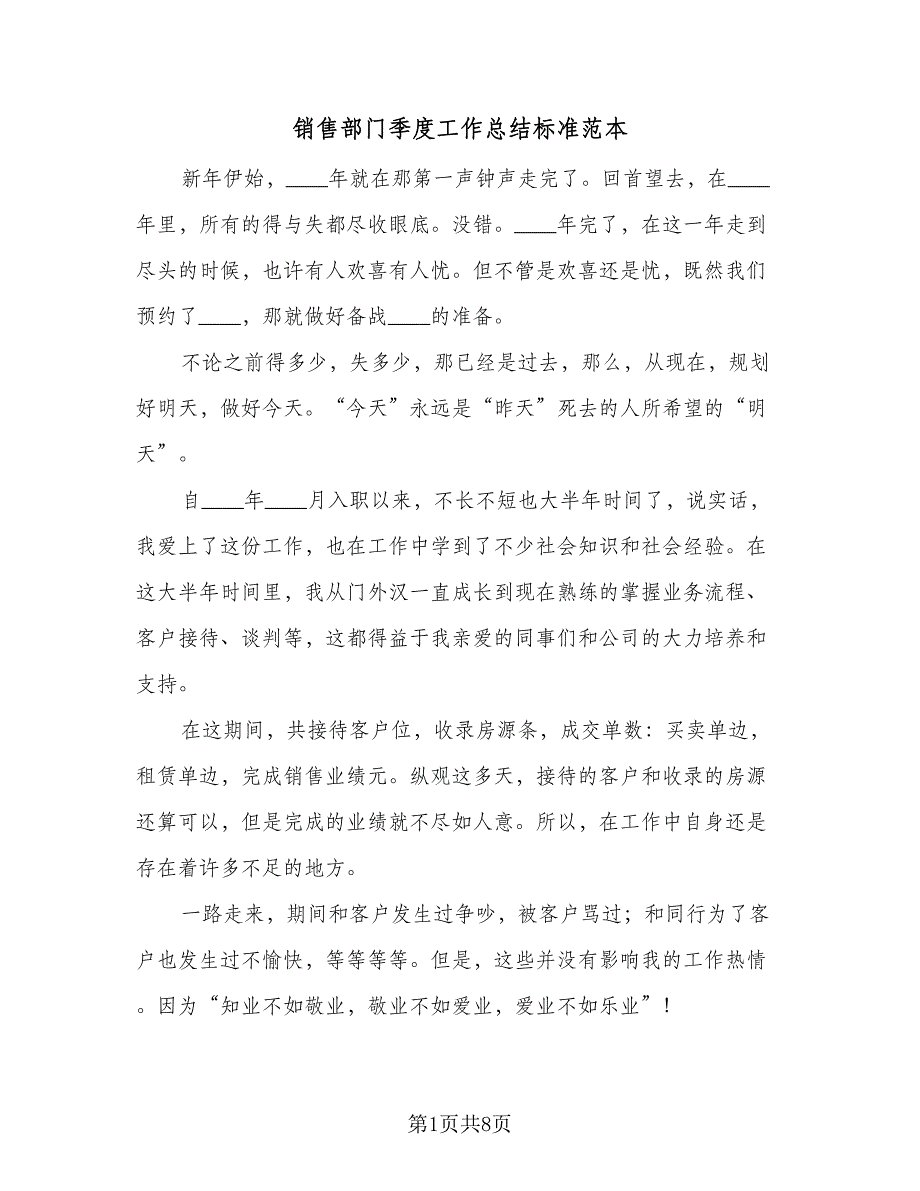 销售部门季度工作总结标准范本
新年伊始，____年就在那第一声钟声走完了。回首望去，在____
年里，所有的得与失都尽收眼底。没错。____年完了，在这一年走到
尽头的时候，也许有人欢喜有人忧。但不管是欢喜还是忧，既然我们
预约了____，那就做好备战____的准备。
不论之前得多少，失多少，那已经是过去，那么，从现在，规划
好明天，做好今天。“今天”永远是“昨天”死去的人所希望的“明
天”。
自____年____月入职以来，不长不短也大半年时间了，说实话，
我爱上了这份工作，也在工作中学到了不少社会知识和社会经验。在
这大半年时间里，我从门外汉一直成长到现在熟练的掌握业务流程、
客户接待、谈判等，这都得益于我亲爱的同事们和公司的大力培养和
支持。
在这期间，共接待客户位，收录房源条，成交单数：买卖单边，
租赁单边，完成销售业绩元。纵观这多天，接待的客户和收录的房源
还算可以，但是完成的业绩就不尽如人意。所以，在工作中自身还是
存在着许多不足的地方。
一路走来，期间和客户发生过争吵，被客户骂过；和同行为了客
户也发生过不愉快，等等等等。但是，这些并没有影响我的工作热情
。因为“知业不如敬业，敬业不如爱业，爱业不如乐业”！
第1页共8页